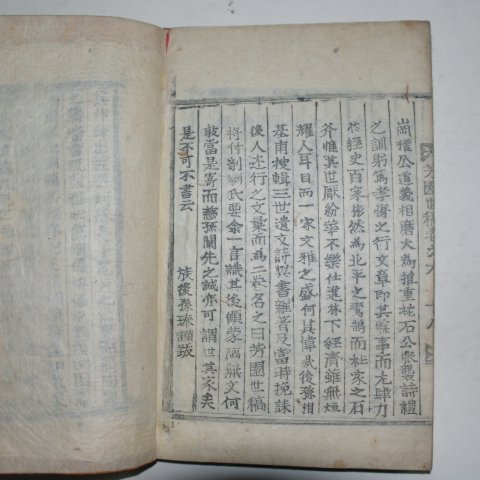 崗權公道義相磨大為推重枕石公襲詩禮
之訓躬篤孝睦之行文章即其餘事而尤肆力
於經史百家依然為北平之鸞鵠而杜家之石
斧惟其世厭紛華不樂仕進林下經濟雖無烜
耀人耳目而一家文雅之盛何其偉哉後孫相
基甫搜輯三世遺文詩與書雜著及當時挽誄
後人之行之文彙而為二卷名之曰芳園世稿
將付剞劂氏要余一言識其後顧蒙陋無文何
敢當是寄而慈孫闡先之誠亦可謂世其家矣
是不可不書云
族後孫瑧謹跋
芳園世稿卷之